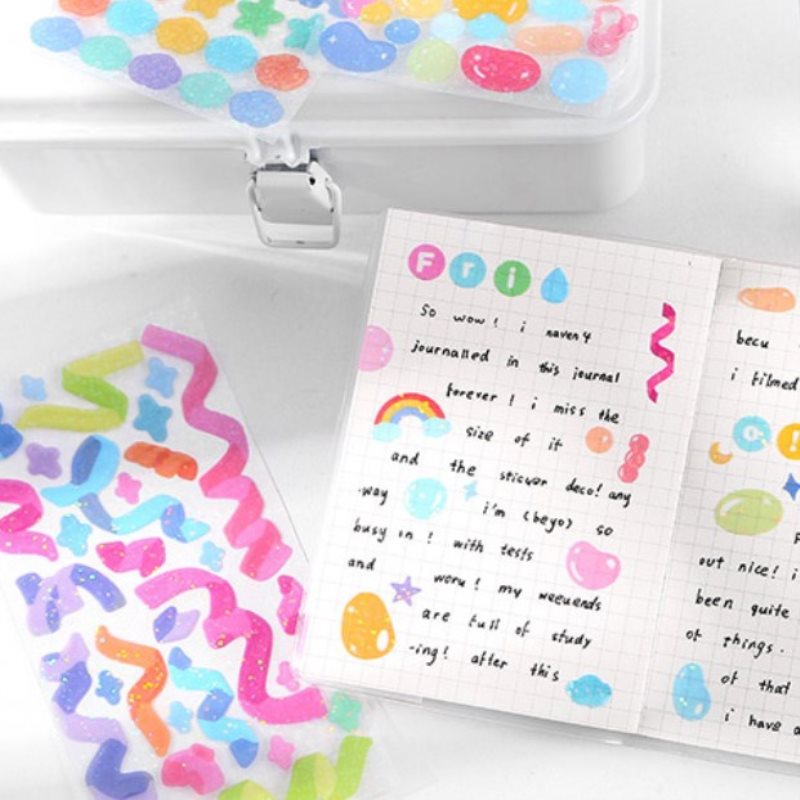 Fri
So wow! i haven't
journalled in this journal
forever! i miss the
size of it
and the sticker deco! any
-way i'm (beyo) so
busy in! with tests
and work! my weekends
are full of study
-ing! after this
becu
i filmed
out nice! i
been quite
of things.
of that
i have a